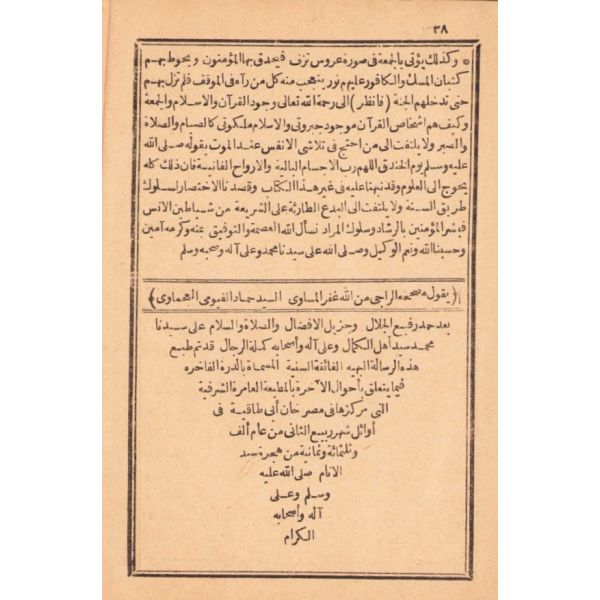 ٣٨
* وكذلك يؤتى بالجمعة فى صورة عروس تزف فيحدق بها المؤمنون ويحوط بهم
كثبان المسك والكافور عليهم نور يتعجب منه كل من رآه فى الموقف فلم تزل بهم
حتى تدخلهم الجنة (فانظر) الى رحمة الله تعالى وجود القرآن والاسلام والجمعة
وكيف هم اشخاص القرآن موجود جبروتى والاسلام ملكوتى كالصيام والصلاة
والصبر ولا يلتفت الى من احتج فى تلاشى الانفس عند الموت بقوله صلى الله
عليه وسلم يوم الخندق اللهم رب الاجسام البالية والارواح الفانية فان ذلك كله
يحوج الى العلوم وقد نبهنا عليه فى غير هذا الكتاب وقصدنا الاختصار لسلوك
طريق السنة ولا يلتفت الى البدع الطارئة على الشريعة من شياطين الانس
فبشر المؤمنين بالرشاد وسلوك المراد نسأل الله العصمة والتوفيق بمنه وكرمه آمين
وحسبنا الله ونعم الوكيل وصلى الله على سيدنا محمد وعلى آله وصحبه وسلم
(يقول مصححه الراجى من الله غفر المساوى السيد حماد الفيومى العجماوى)
بعد حمد رفيع الجلال وجزيل الافضال والصلاة والسلام على سيدنا
محمد سيد أهل الكمال وعلى آله وأصحابه كملة الرجال قد تم طبع
هذه الرسالة البهيه الفائقة السنية المسماة بالدرة الفاخره
فيما يتعلق بأحوال الآخرة بالمطبعة العامرة الشرفية
التى مركزها فى مصر خان أبى طاقية فى
أوائل شهر ربيع الثانى من عام ألف
وثلثمائة وثمانية من هجرة سيد
الانام صلى الله عليه
وسلم وعلى
آله وأصحابه
الكرام